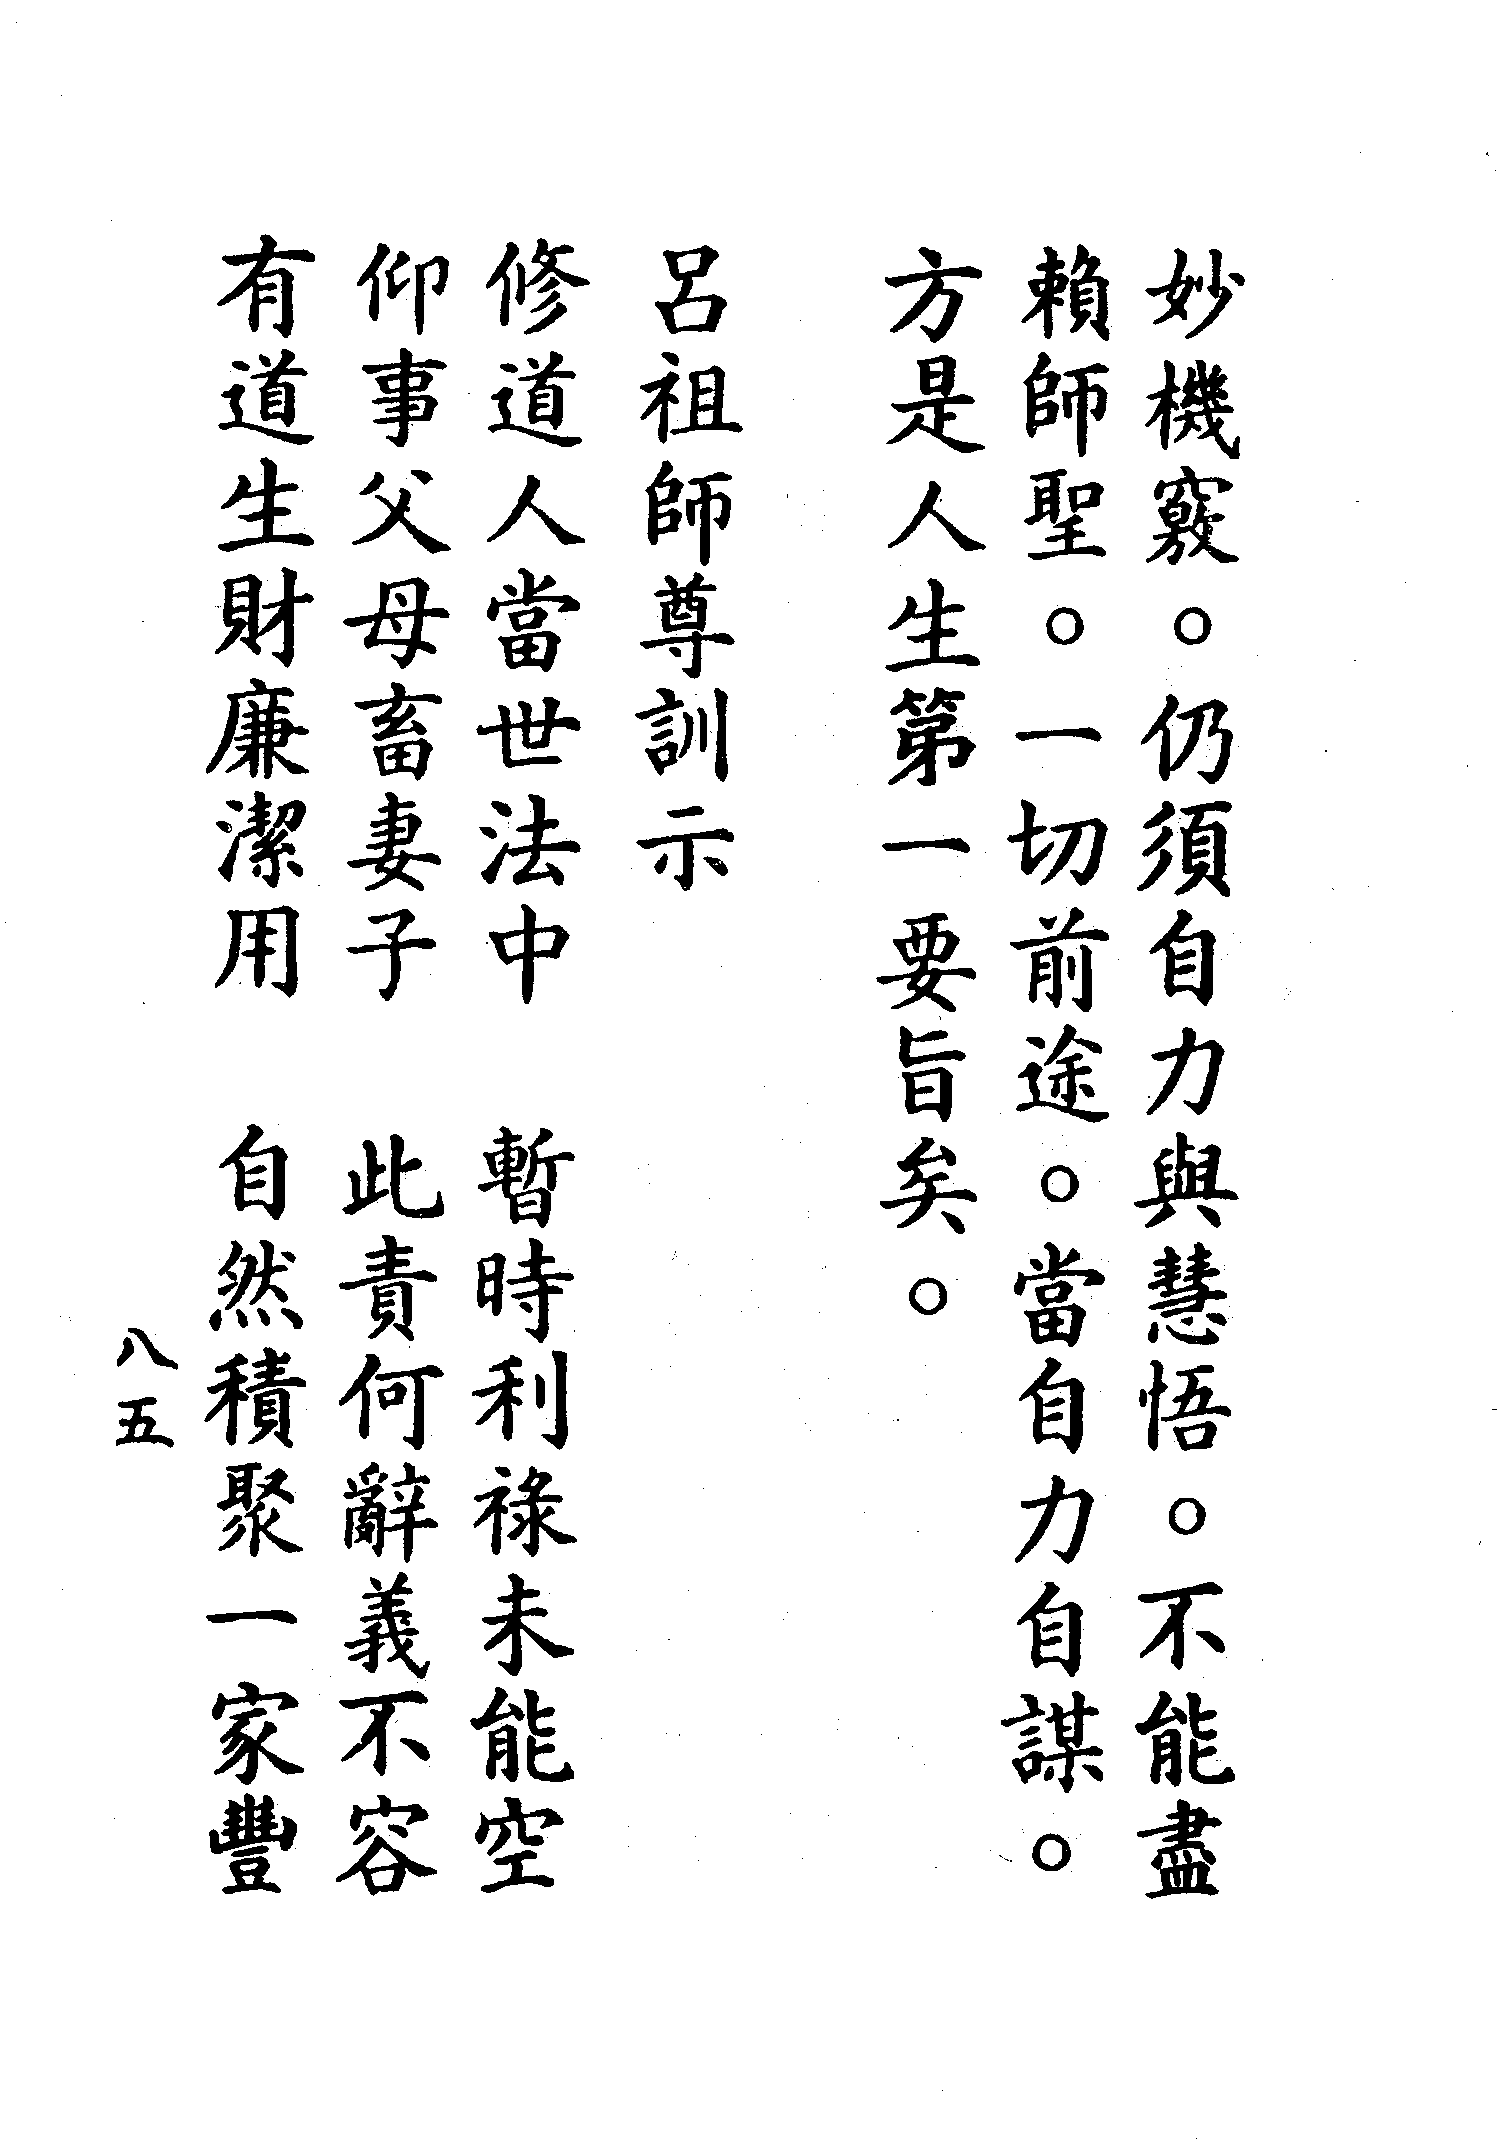 妙機竅。仍須自力與慧悟。不能盡
賴師聖。一切前途。當自力自謀。
方是人生第一要旨矣。
呂祖師尊訓示
修道人當世法中　暫時利祿未能空
仰事父母畜妻子　此責何辭義不容
有道生財廉潔用　自然積聚一家豐
八五